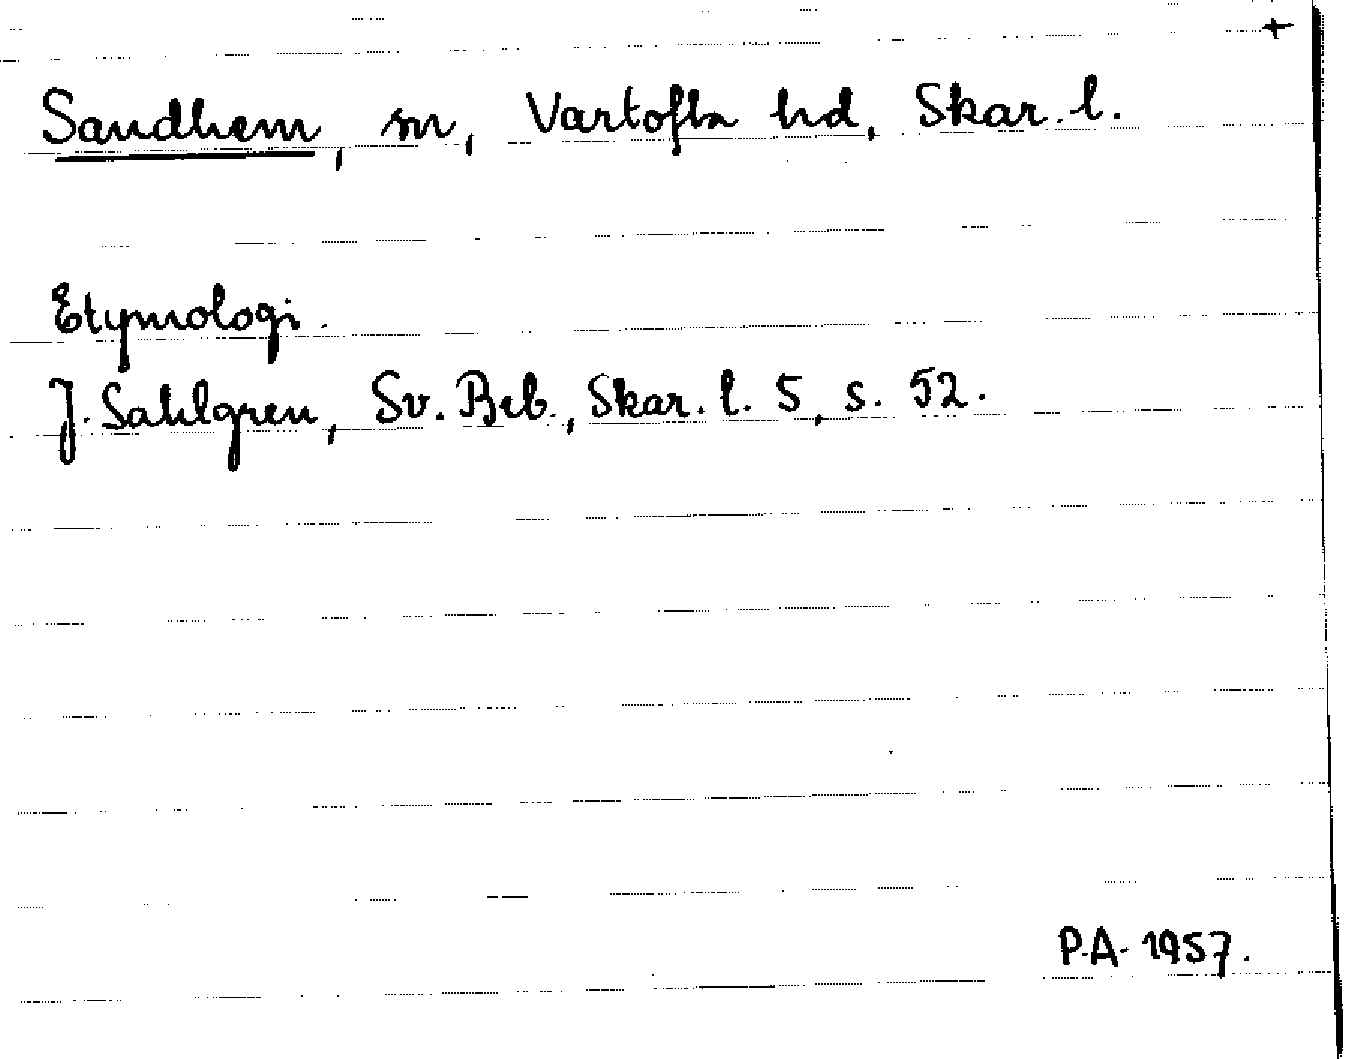 +
Sandhem, sn, Vartofta hd, Skar. l.
Etymologi.
J. Sahlgren, Sv. Beb., Skar. l. 5, s. 52.
P.A. 1957.